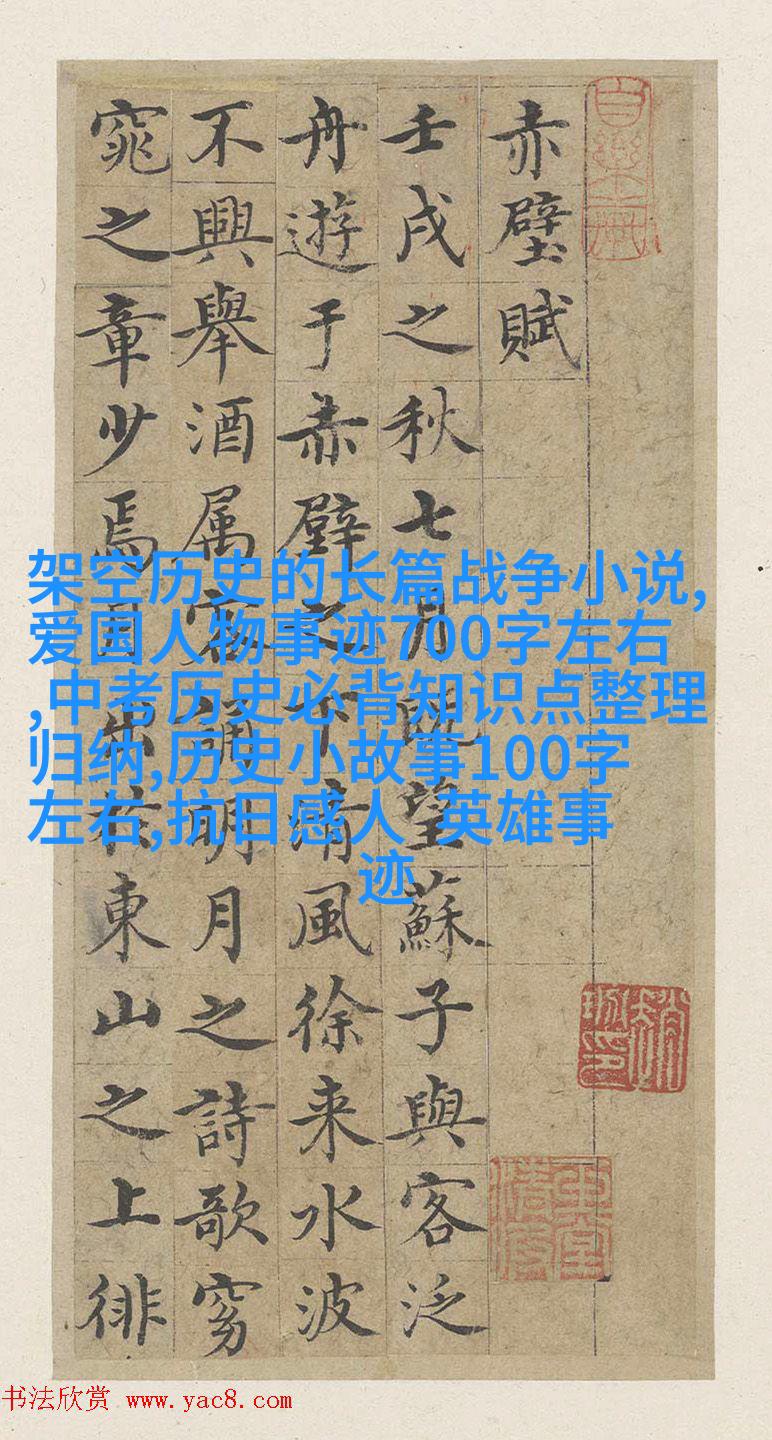 赤壁賦
壬戌之秋七月既望蘇子與客泛
舟遊于赤壁之下清風徐来水波
不興舉酒属客誦明月之詩歌窈
窕之章少焉月出於東山之上徘
架空历史的长篇战争小说,
爱国人物事迹700字左右
,中考历史必背知识点整理
归纳,历史小故事100字
左右,抗日感人 英雄事
迹
书法欣赏 www.yac8.com